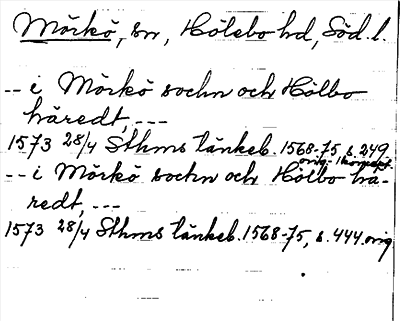 Mörkö, sn, Hölebo hd, Söd. l.
-- i Mörkö sochn och Hölbo
häredt, ---
1573 28/4 Sthms tänkeb. 1568-75 s. 249
orig.
-- i Mörkö sochn och Hölbo hä-
redt, ---
1573 28/4 Sthms tänkeb. 1568-75, s. 444 orig